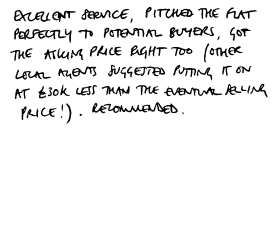 EXCELLENT SERVICE, PITCHED THE FLAT
PERFECTLY TO POTENTIAL BUYERS, GOT
THE ASKING PRICE RIGHT TOO (OTHER
LOCAL AGENTS SUGGESTED PUTTING IT ON
AT £30K LESS THAN THE EVENTUAL SELLING
PRICE!). RECOMMENDED.